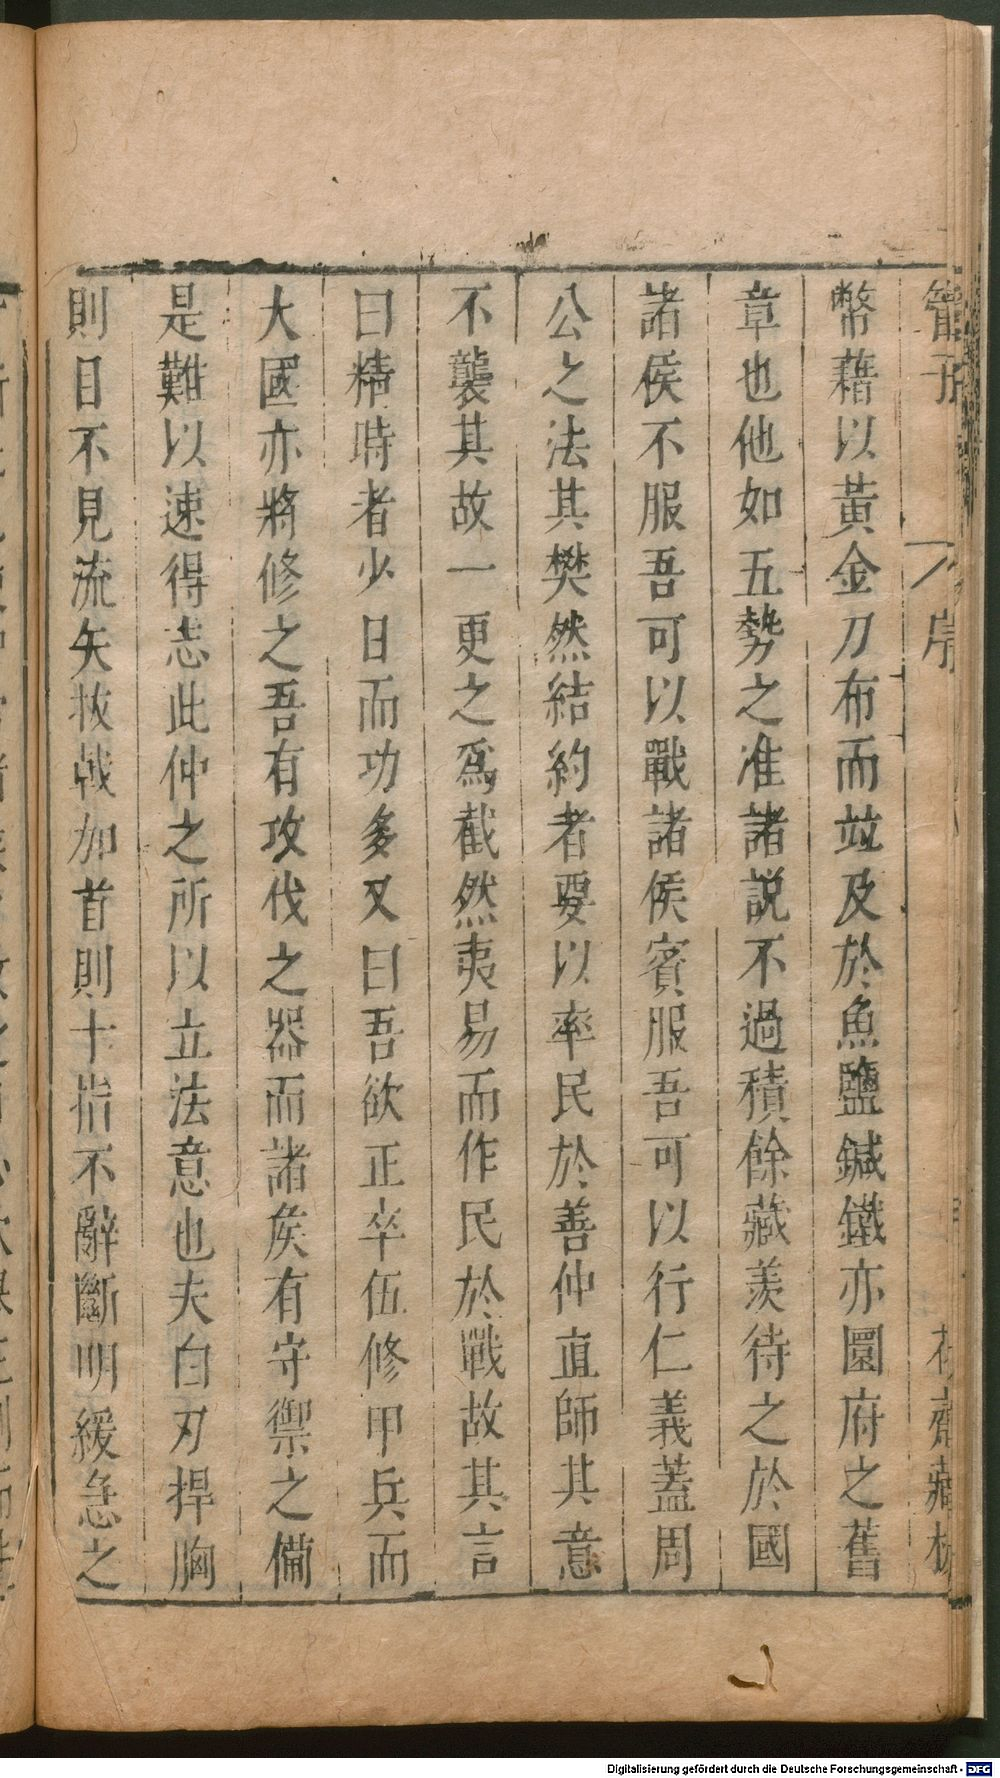 管子
序
齋藏板
幣藉以黃金刀布而竝及於魚鹽鍼鐵亦圜府之舊
章也他如五勢之准諸說不過積餘藏羨待之於國
諸侯不服吾可以戰諸侯賓服吾可以行仁義蓋周
公之法其樊然結約者要以率民於善仲直師其意
不襲其故一更之爲截然夷易而作民於戰故其言
曰精時者少日而功多又曰吾欲正卒伍修甲兵而
大國亦將修之吾有攻伐之器而諸矦有守禦之備
是難以速得志此仲之所以立法意也夫白刃捍胸
則目不見流矢拔戟加首則十指不辭斷明緩急之
Digitalisierung gefördert durch die Deutsche Forschungsgemeinschaft - DFG